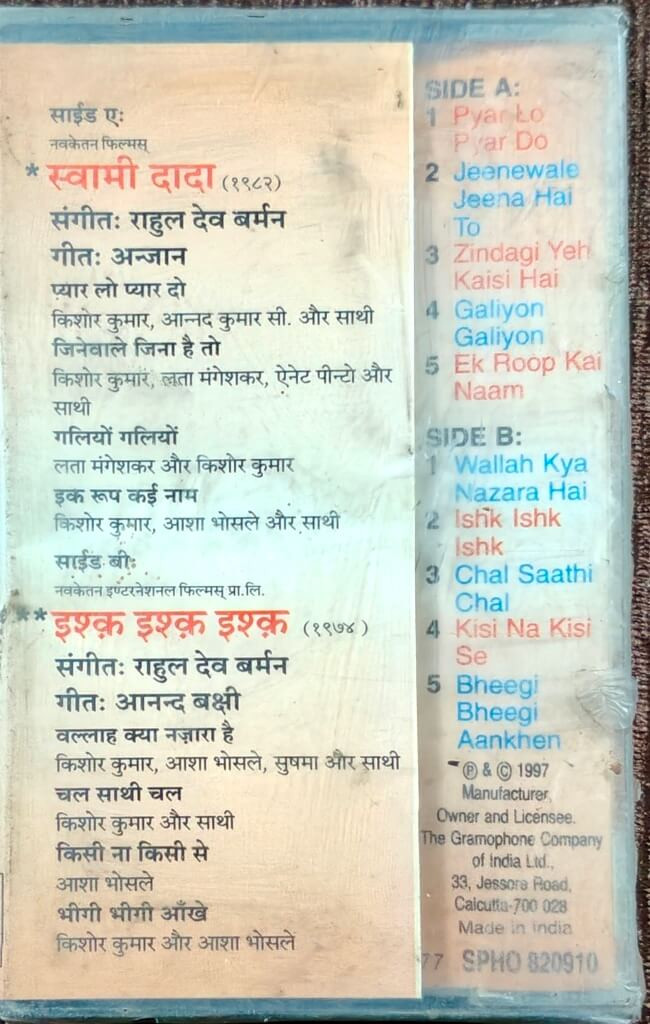 साईड ए:
नवकेतन फिल्मस्
*स्वामी दादा (१९८२)
संगीत: राहुल देव बर्मन
गीत: अन्जान
प्यार लो प्यार दो
किशोर कुमार, आन्नद कुमार सी. और साथी
जिनेवाले जिना है तो
किशोर कुमार, लता मंगेशकर, ऐनेट पीन्टो और
साथी
गलियों गलियों
लता मंगेशकर और किशोर कुमार
इक रूप कई नाम
किशोर कुमार, आशा भोसले और साथी
साईड बी:
नवकेतन इण्टरनेशनल फिल्मस् प्रा.लि.
**इश्क़ इश्क़ इश्क़ (१९७४)
संगीत: राहुल देव बर्मन
गीत: आनन्द बक्षी
वल्लाह क्या नज़ारा है
किशोर कुमार, आशा भोसले, सुषमा और साथी
चल साथी चल
किशोर कुमार और साथी
किसी ना किसी से
आशा भोसले
भीगी भीगी आँखे
किशोर कुमार और आशा भोसले
SIDE A:
1 Pyar Lo
Pyar Do
2 Jeenewale
Jeena Hai
To
3 Zindagi Yeh
Kaisi Hai
4 Galiyon
Galiyon
5 Ek Roop Kai
Naam
SIDE B:
1 Wallah Kya
Nazara Hai
2 Ishk Ishk
Ishk
3 Chal Saathi
Chal
4 Kisi Na Kisi
Se
5 Bheegi
Bheegi
Aankhen
℗ & © 1997
Manufacturer,
Owner and Licensee.
The Gramophone Company
of India Ltd.,
33, Jessore Road,
Calcutta-700 028
Made in India
77 SPHO 820910